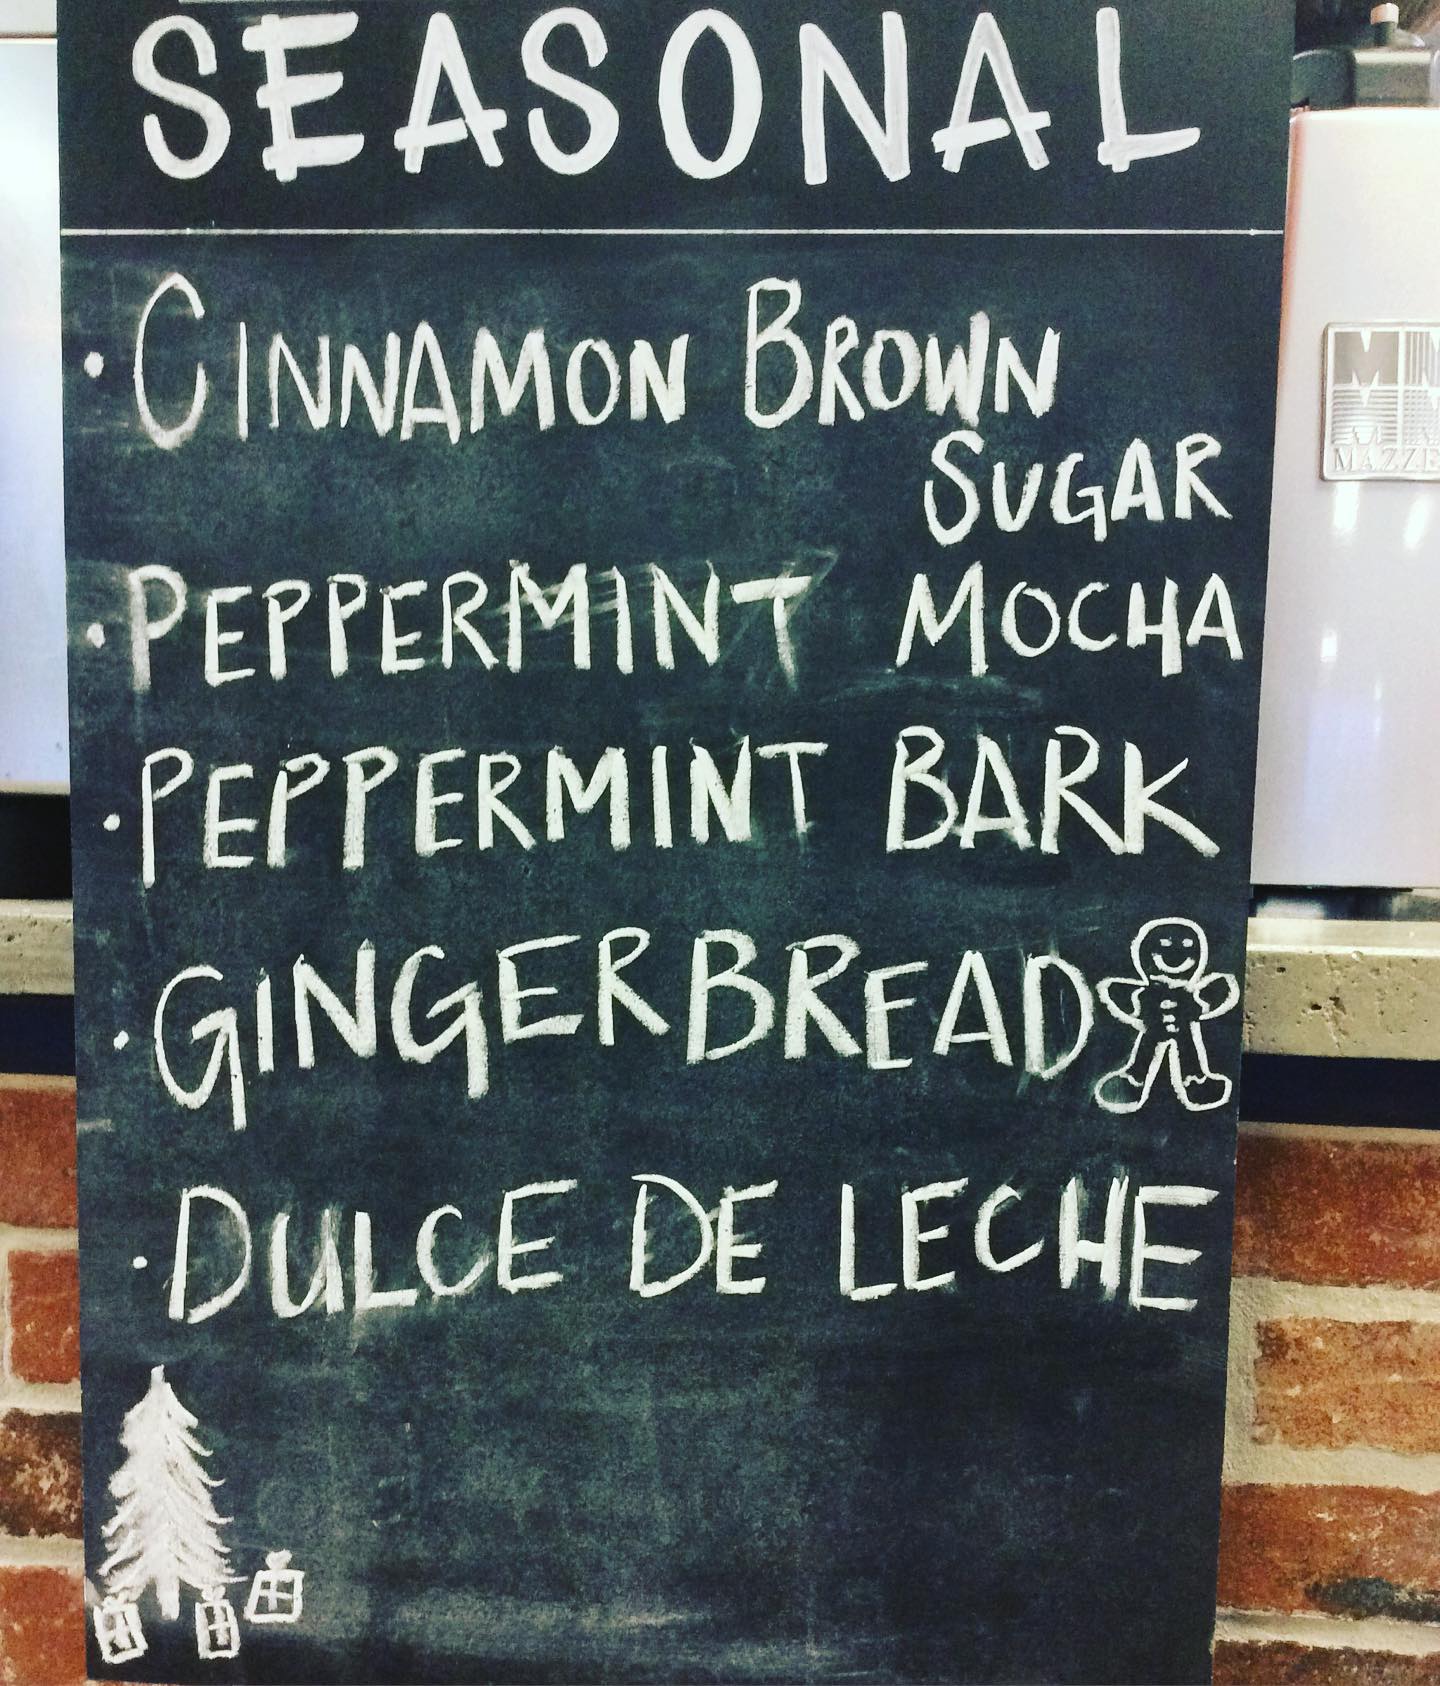 SEASONAL
· CINNAMON BROWN
SUGAR
· PEPPERMINT MOCHA
· PEPPERMINT BARK
· GINGERBREAD
· DULCE DE LECHE